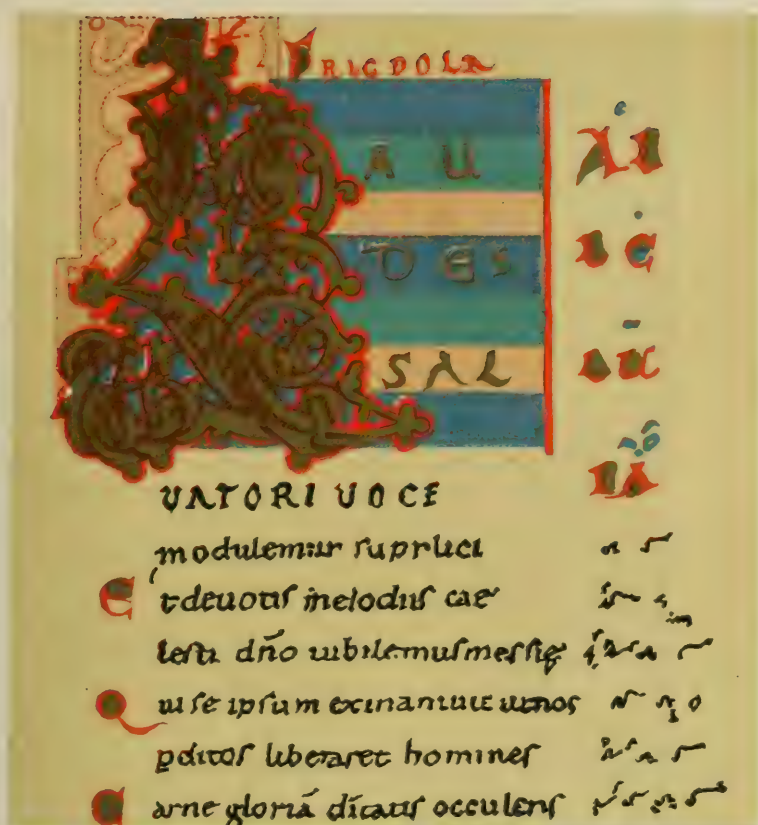 FRIGDOLA
LAU
DES
SAL
UATORI UOCE
modulemur supplici
Et deuotis melodiis cae
lesti dño iubilemus messię
Qui se ipsum exinaniuit ut nos
pditos liberaret homines
Carne gloriā ditatis occulens